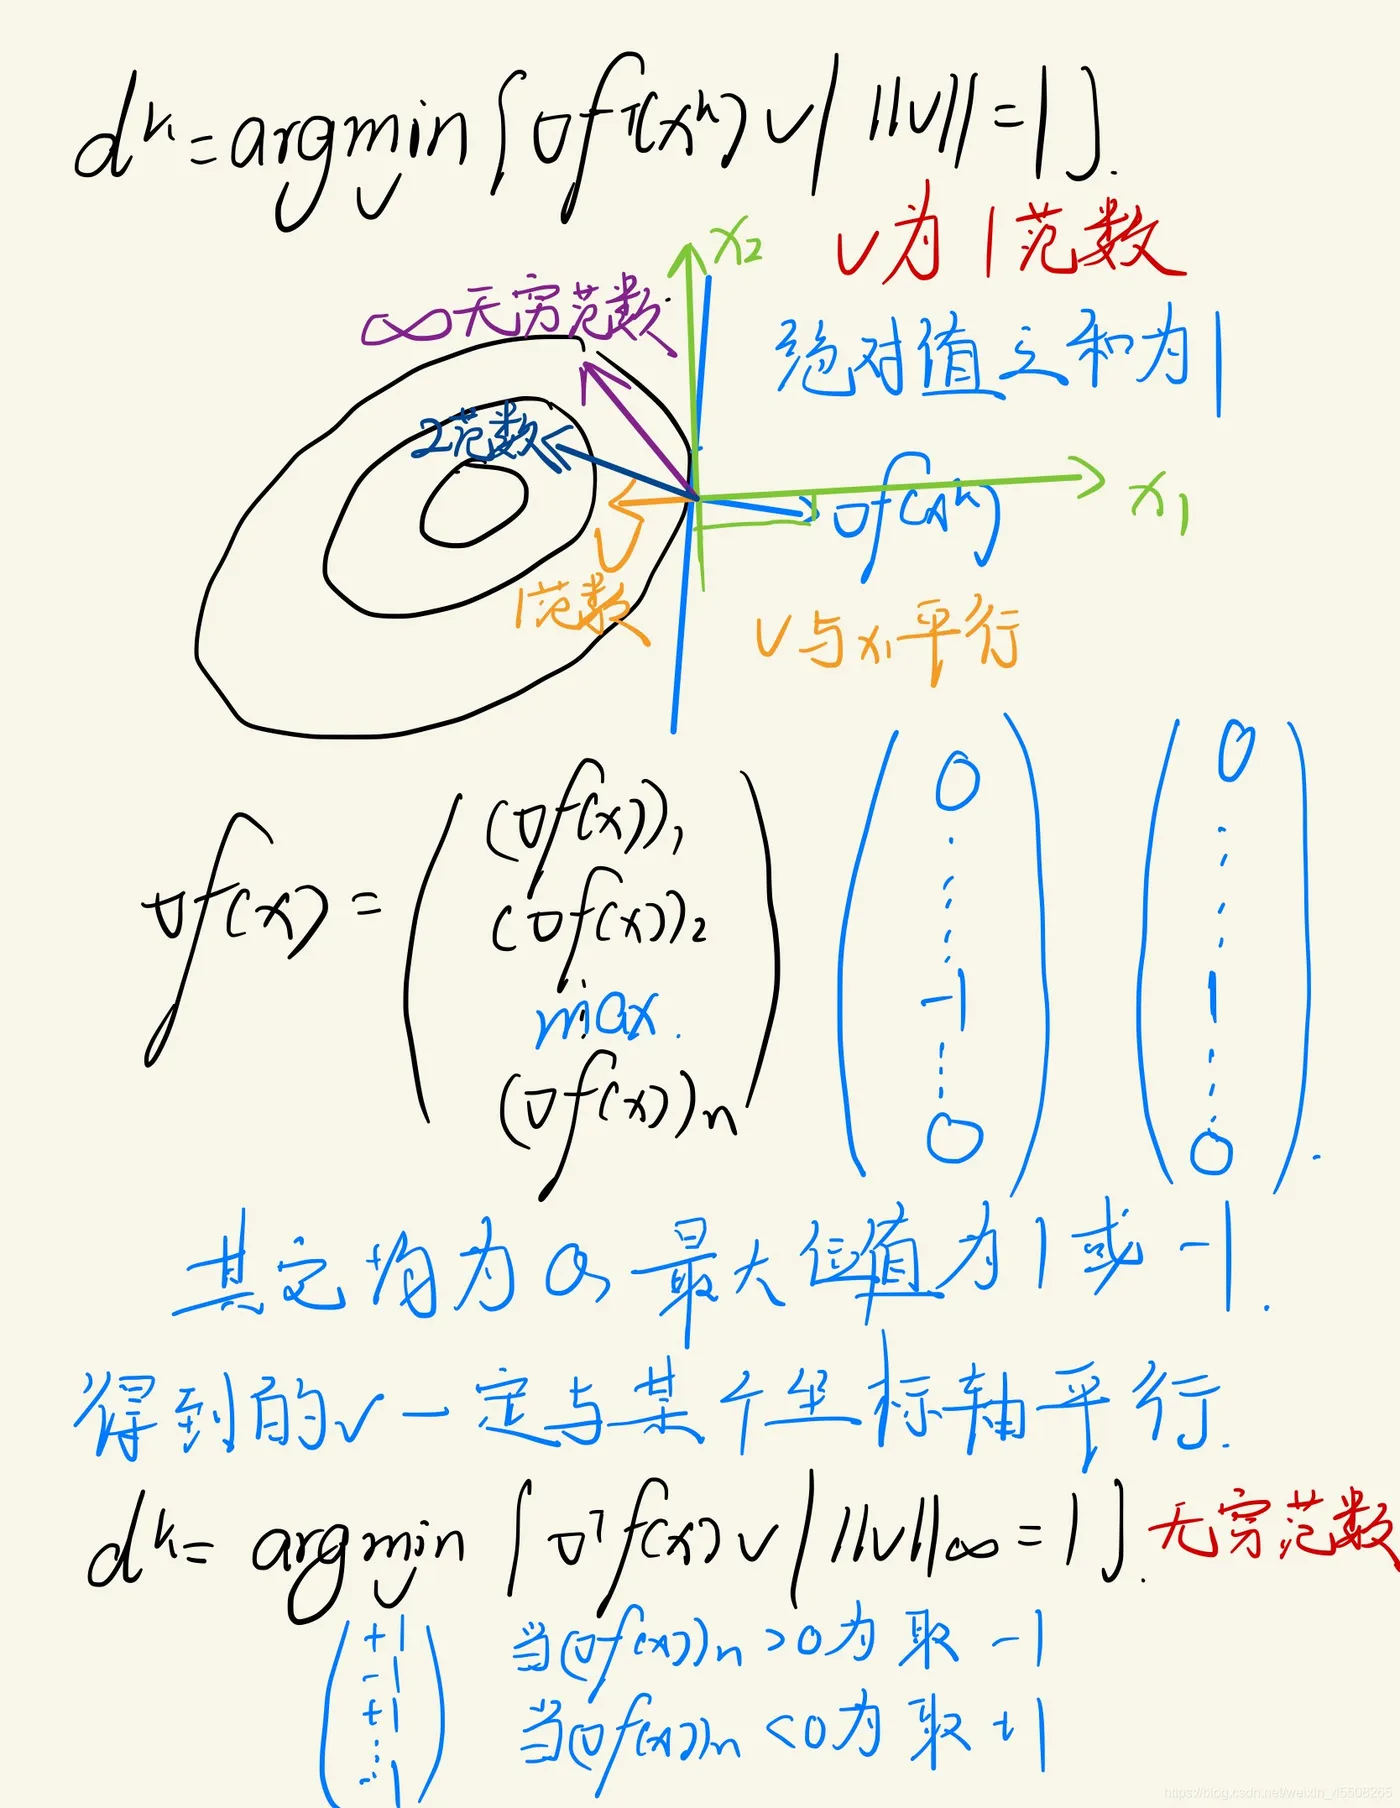 d^k = argmin_v {∇f^T(x^k) v | ||v|| = 1}.
v为1范数
x₂
∞无穷范数
绝对值之和为1
2范数
∇f(x^k)
x₁
v
1范数
v与x₁平行
∇f(x) = ( (∇f(x))₁ (∇f(x))₂ max. (∇f(x))n ) ( 0 ⋮ -1 ⋮ 0 ) ( 0 ⋮ 1 ⋮ 0 ).
其它均为0, 最大位值为1或-1.
得到的v一定与某个坐标轴平行.
d^k = argmin_v {∇^T f(x) v | ||v||∞ = 1}. 无穷范数
( +1 -1 +1 ⋮ -1 )
当(∇f(x))n >0为取 -1
当(∇f(x))n <0为取 +1
https://blog.csdn.net/weixin_45508265